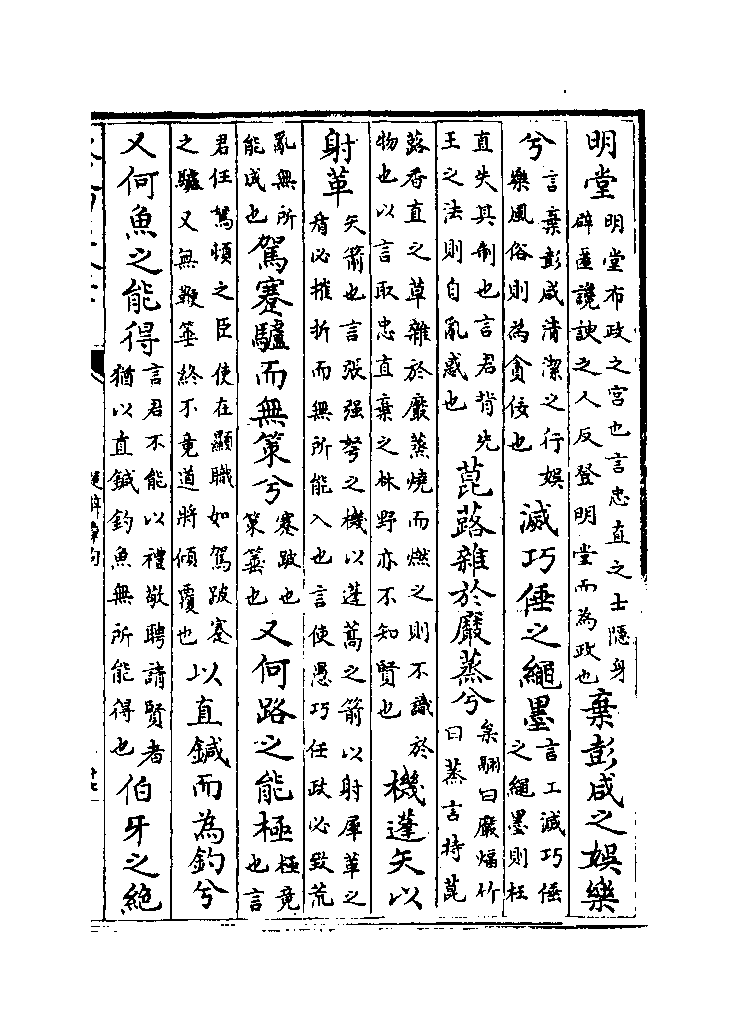 明堂明堂布政之宮也言忠直之士隱身辟匿讒諛之人反登明堂而為政也棄彭咸之娛樂
兮言棄彭咸清潔之行娛樂風俗則為貪佞也滅巧倕之繩墨言工滅巧倕之繩墨則枉
直失其制也言君背先王之法則自亂惑也菎蕗雜於黀蒸兮枲翮曰黀煏竹曰蒸言持菎
蕗香直之草雜於黀蒸燒而燃之則不識於物也以言取忠直棄之林野亦不知賢也機蓬矢以
射革矢箭也言張强弩之機以蓬蒿之箭以射犀革之盾必摧折而無所能入也言使愚巧任政必致荒
亂無所能成也駕蹇驢而無策兮蹇跛也策箠也又何路之能極極竟也言
君任駑頓之臣使在顯職如駕跛蹇之驢又無鞭箠終不竟道將傾覆也以直鍼而為釣兮
又何魚之能得言君不能以禮敬聘請賢者猶以直鍼釣魚無所能得也伯牙之絕